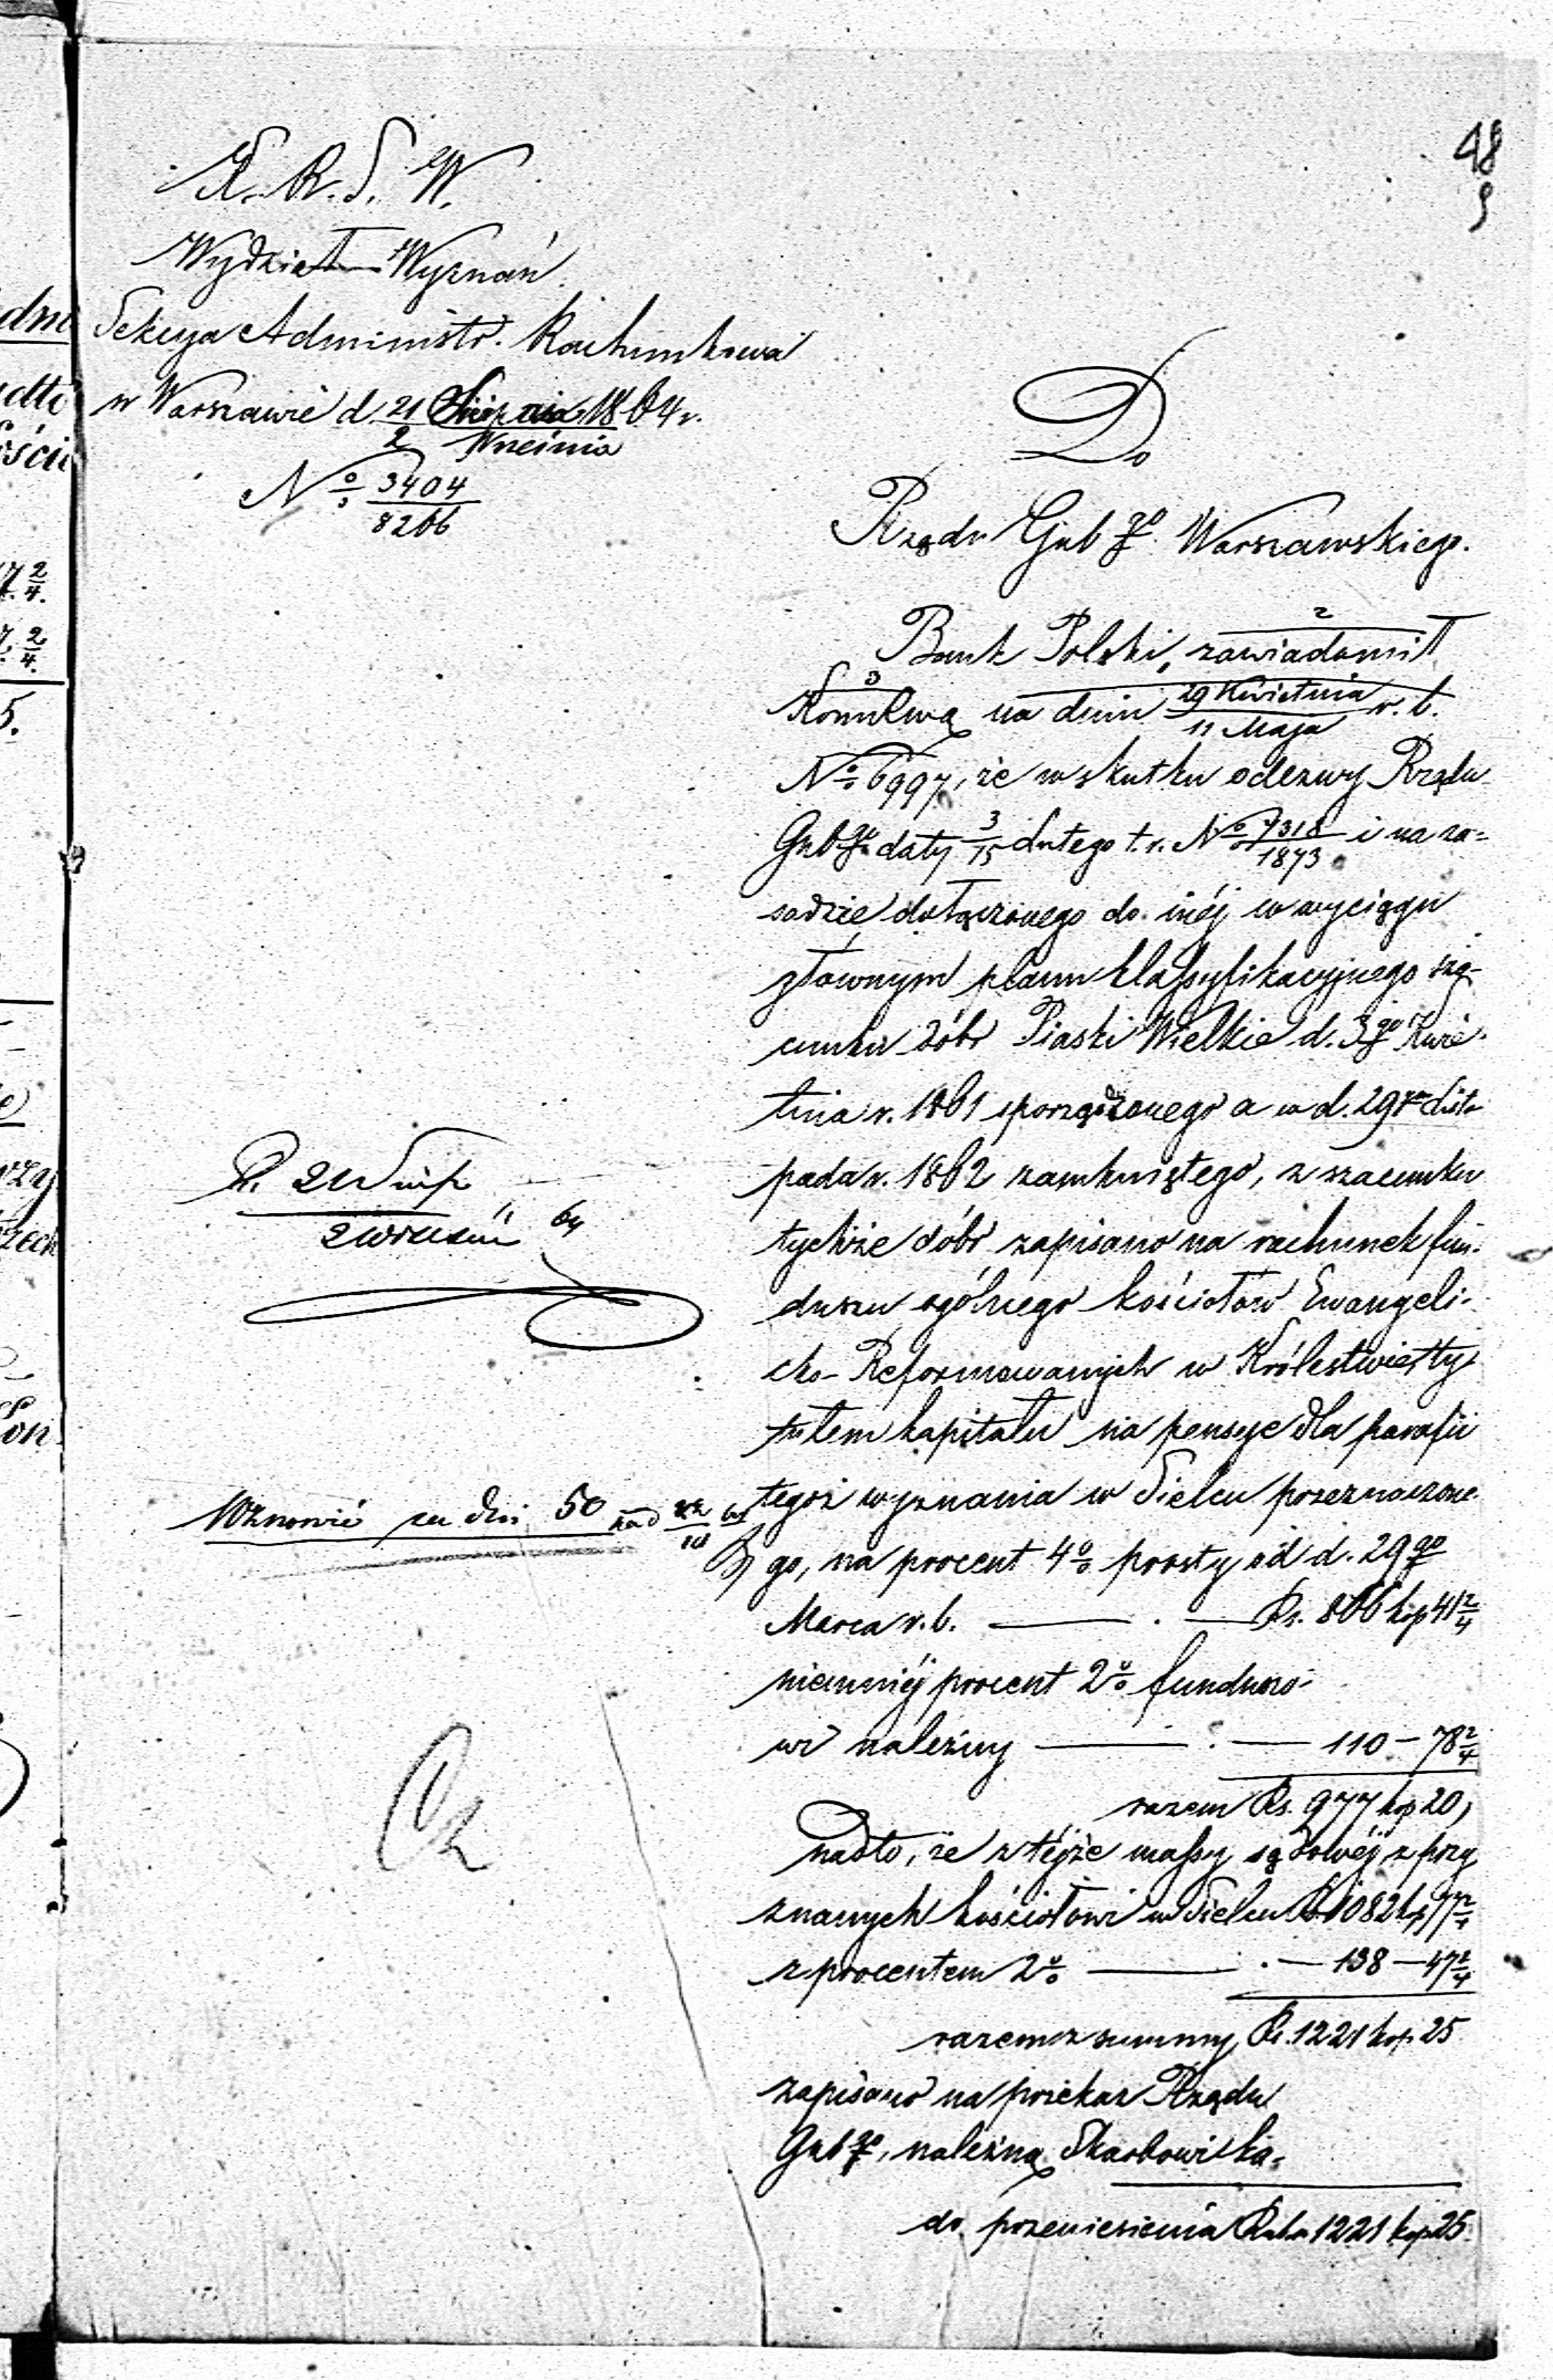 48
9
K. R. S. W.
Wydział Wyznań
Sekcya Administr. Rachunkowa
w Warszawie d 21 Sierpnia 1864 r.
2 Września
No 3404
8266
Do
Rządu Gub go Warszawskiego.
2
Bank Polski, zawiadomił
3
Kommę na dniu 29 Kwietnia r. b.
11 Maja
No 6997, że w skutku odezwy Rządu
Gub go daty 3/15 Lutego t. r. No 7318/1873 i na za-
sadzie dołączonego do niéj w wyciągu
głównym planu klassyfikacyjnego sza-
cunku dóbr Piaski Wielkie d. 3go Kwie-
tnia r. 1861 sporządzonego a w d. 29 Listo-
pada r. 1862 zamkniętego, z szacunku
tychże dóbr zapisano na rachunek fun-
duszu ogólnego kościołów Ewangeli-
cko-Reformowanych w Królestwie, ty-
tułem kapitału na pensye dla parafii
tegoż wyznania w Sielcu przeznaczone-
go, na procent 4% prosty od d. 29 go
Marca r. b. — . — Rs. 866 kop 41 2/4
niemniéj procent 2% funduszo-
wi należny — . — 110 – 78 2/4
razem Rs. 977 kop 20,
nadto, że z téjże massy sądowéj z przy-
znanych kościołowi w Sielcu Rs. 1082 k. 77 2/4
z procentem 2% — . — 138 – 47 2/4
razem z summy Rs. 1221 kop. 25
zapisano na przekaz Rządu
Gub go, należną Skarbowi ka-
do przeniesienia Rubs 1221 kop 25.
R. 21 Sierp
2 wrześń 64
Wznowić za dni 50